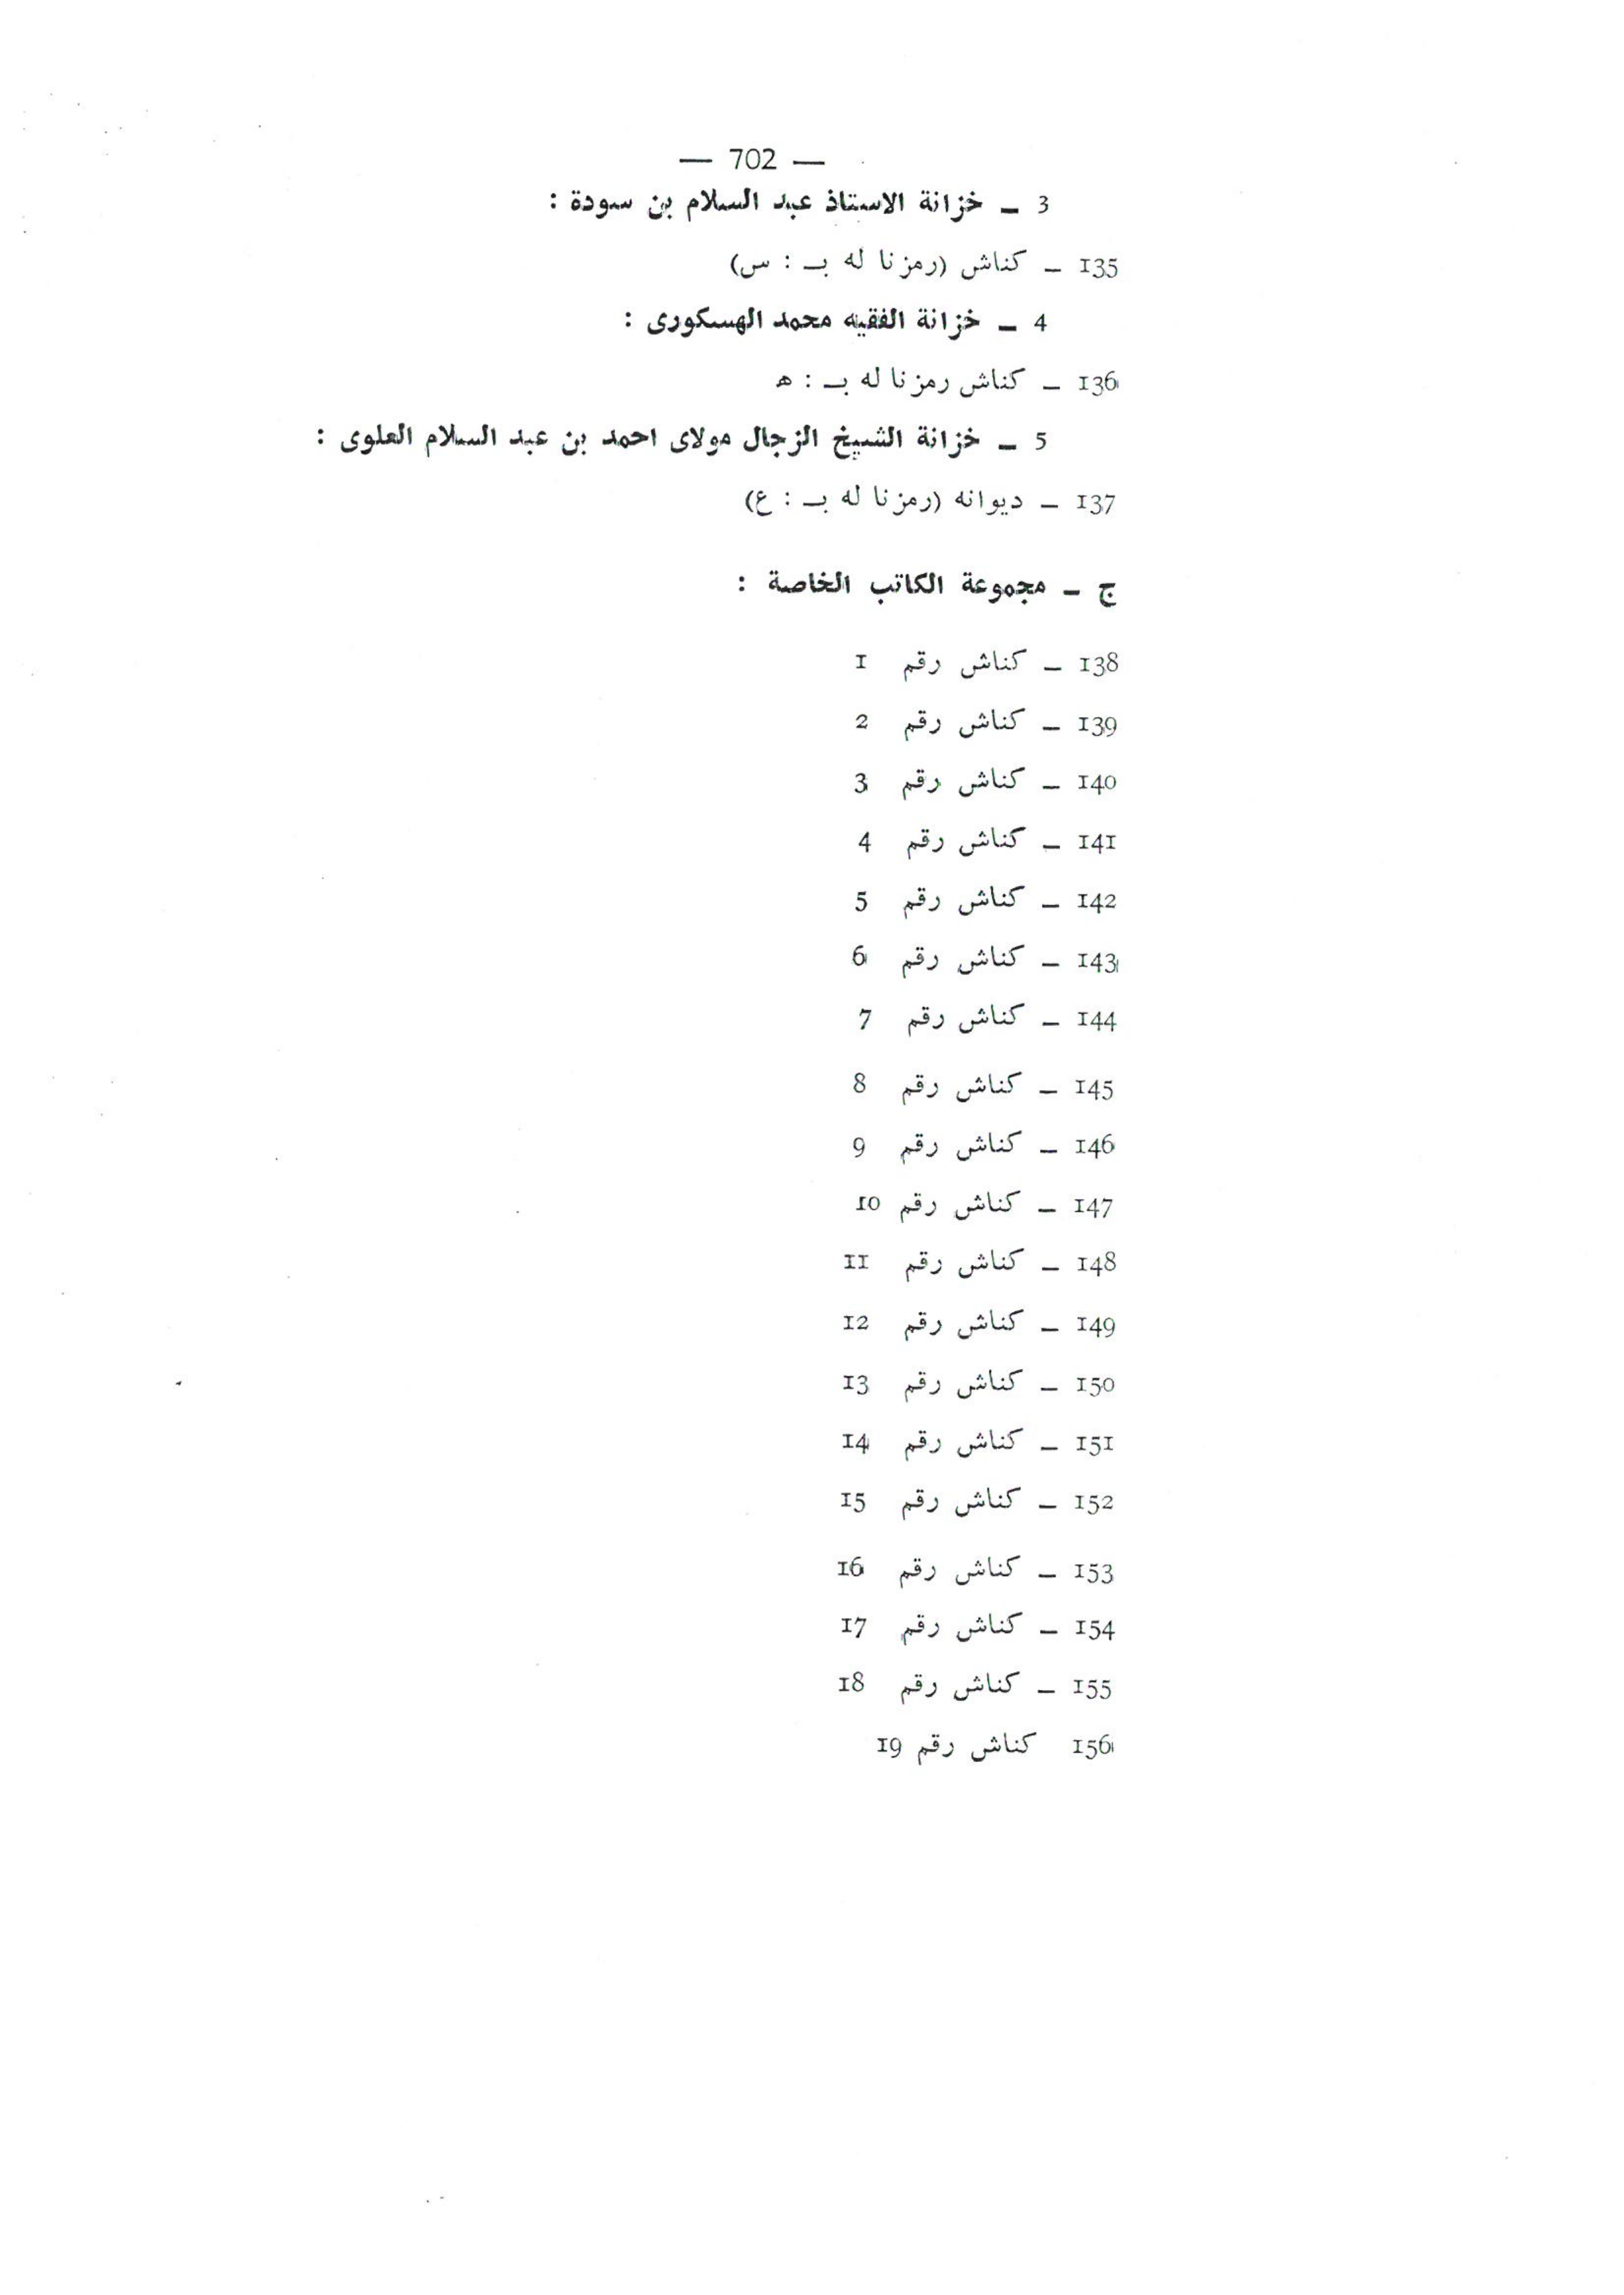 — 702 —
3 ـ خزانة الاستاذ عبد السلام بن سودة :
135 ـ كناش (رمزنا له بـ : س)
4 ـ خزانة الفقيه محمد الهسكورى :
136 ـ كناش رمزنا له بـ : ه
5 ـ خزانة الشيخ الزجال مولاى احمد بن عبد السلام العلوى :
137 ـ ديوانه (رمزنا له بـ : ع)
ج ـ مجموعة الكاتب الخاصة :
138 ـ كناش رقم 1
139 ـ كناش رقم 2
140 ـ كناش رقم 3
141 ـ كناش رقم 4
142 ـ كناش رقم 5
143 ـ كناش رقم 6
144 ـ كناش رقم 7
145 ـ كناش رقم 8
146 ـ كناش رقم 9
147 ـ كناش رقم 10
148 ـ كناش رقم 11
149 ـ كناش رقم 12
150 ـ كناش رقم 13
151 ـ كناش رقم 14
152 ـ كناش رقم 15
153 ـ كناش رقم 16
154 ـ كناش رقم 17
155 ـ كناش رقم 18
156 كناش رقم 19